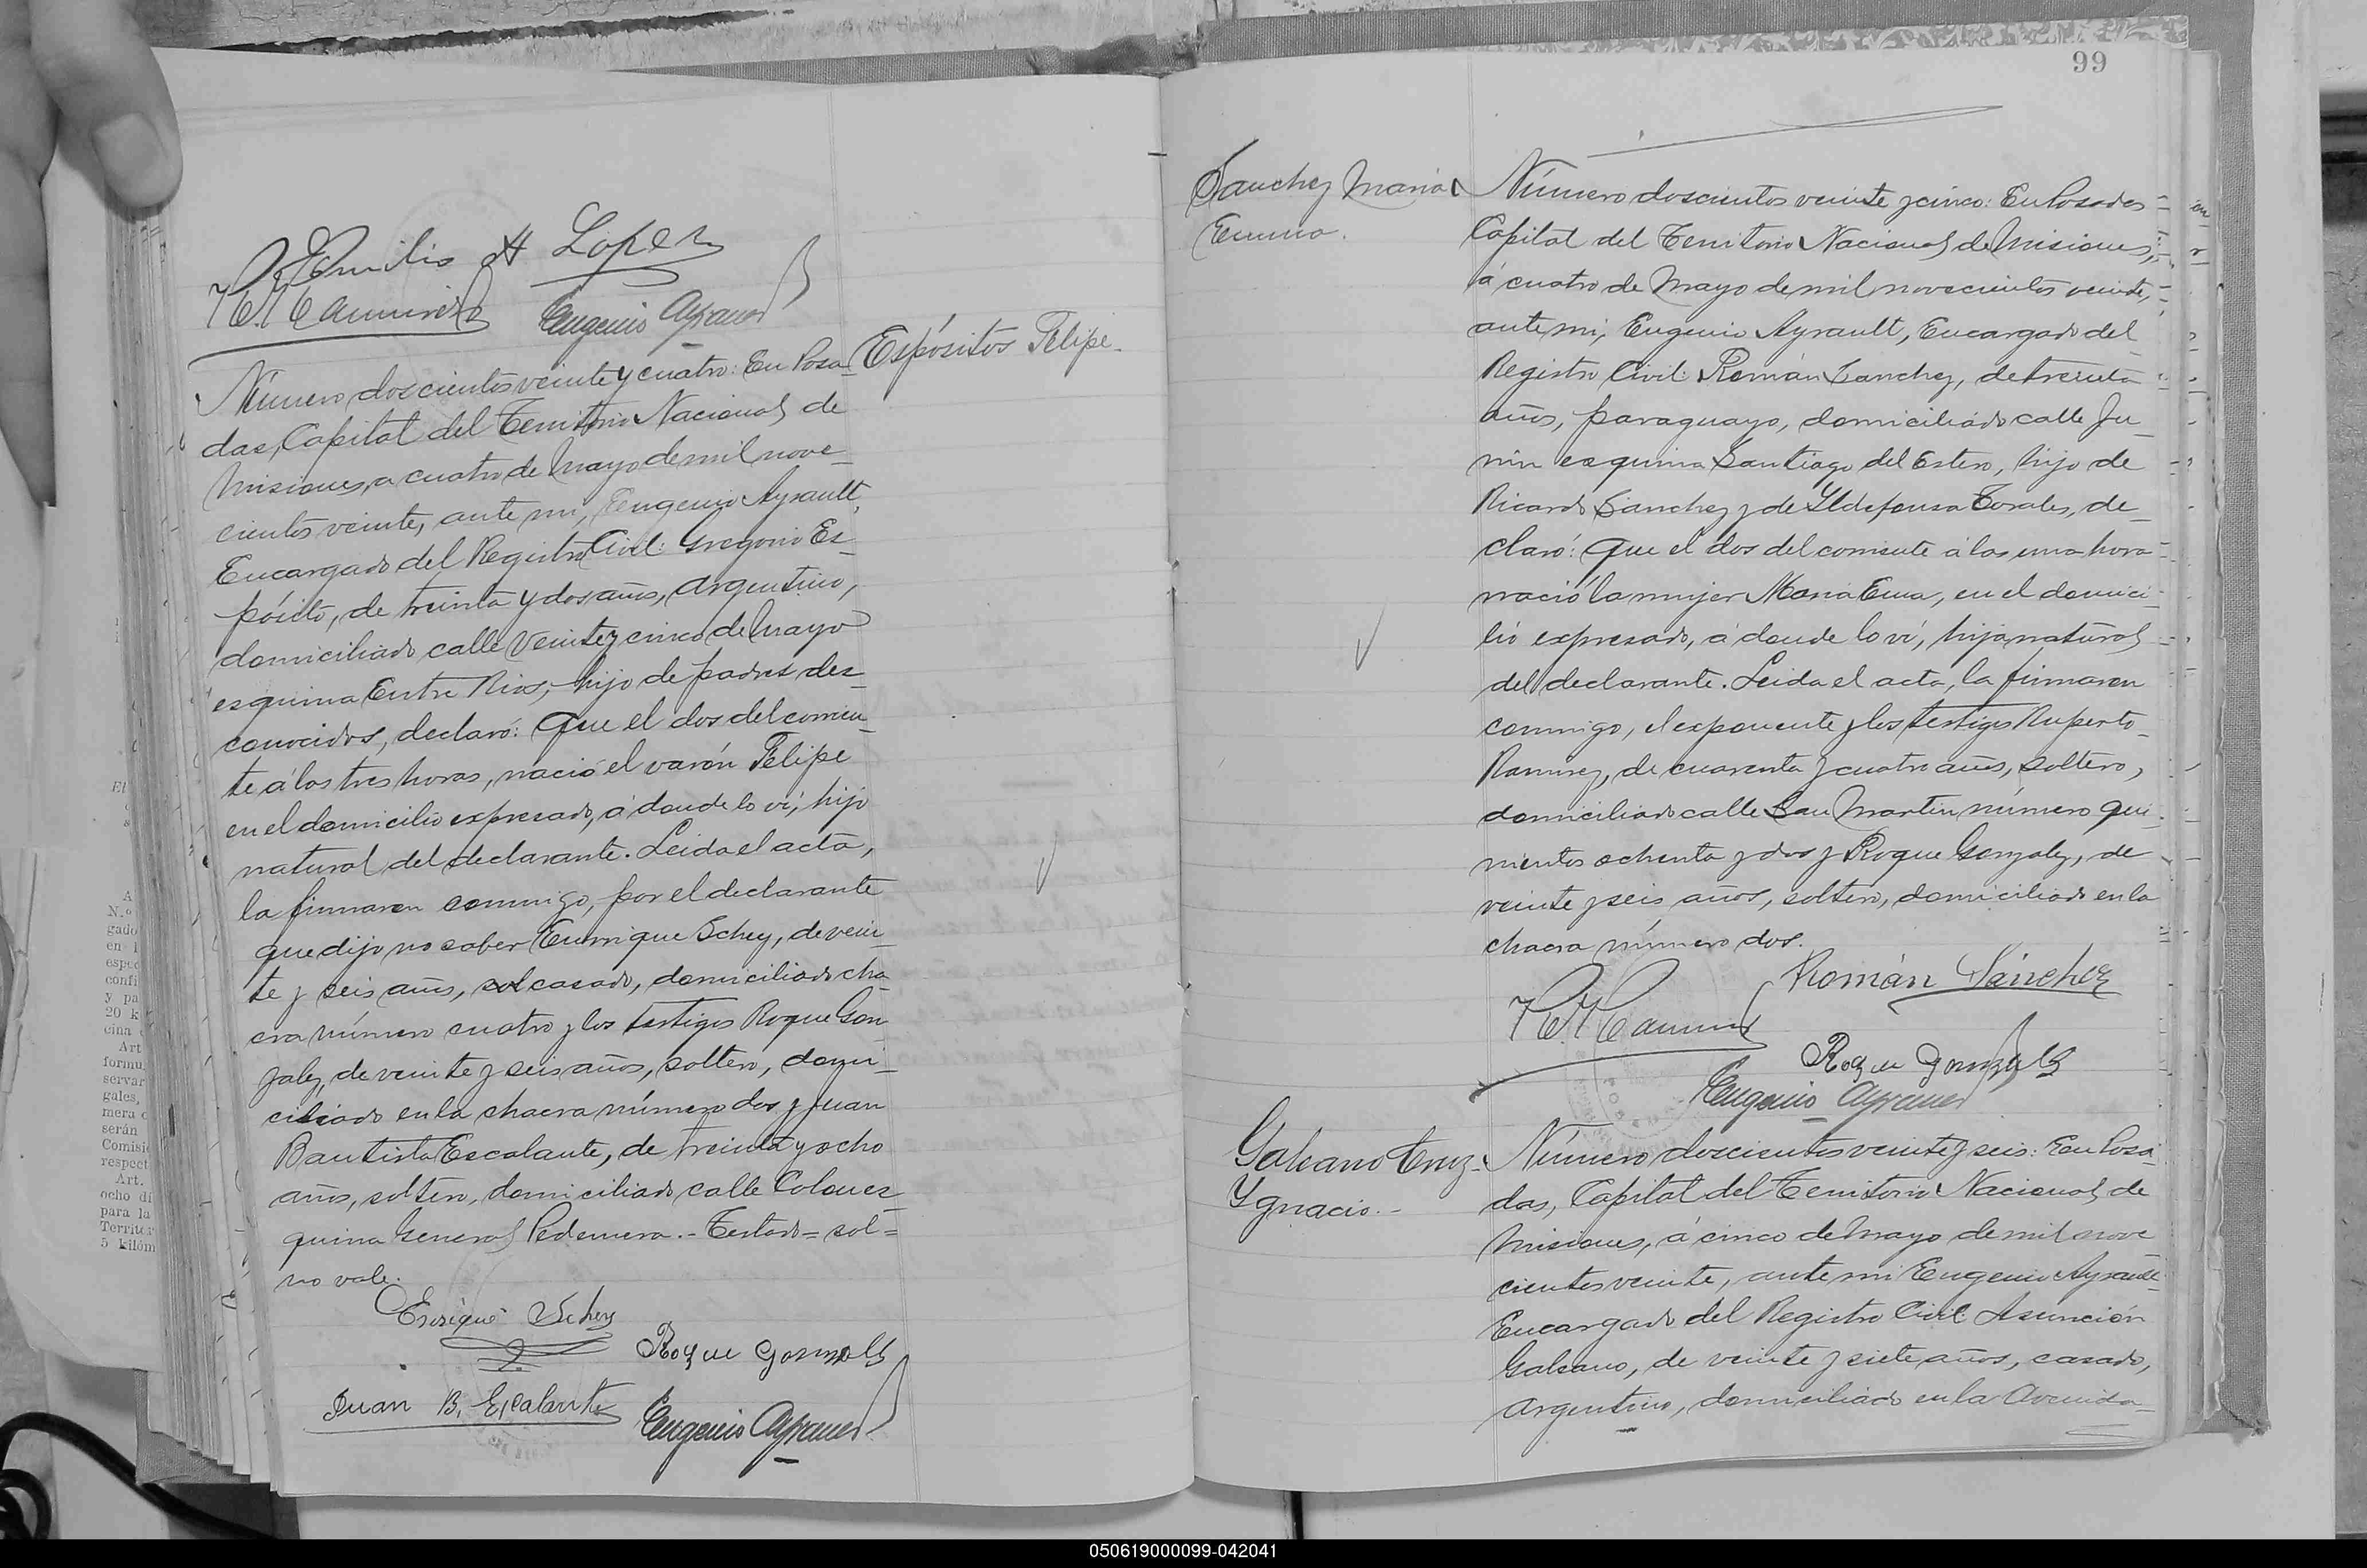 Emilio A Lopez
Eugenio Ayrault
Número doscientos veinte y cuatro: En Posa-
das, Capital del Territorio Nacional de
Misiones, a cuatro de Mayo de mil nove-
cientos veinte, ante mi, Eugenio Ayrault,
Encargado del Registro Civil: Gregorio Es-
pósito, de treinta y dos años, argentino,
domiciliado calle Veinte y cinco de Mayo
esquina Entre Rios, hijo de padres des-
conocidos, declaró: Que el dos del corrien-
te á las tres horas, nació el varón Felipe
en el domicilio expresado, á donde lo ví, hijo
natural del declarante. Leida el acta,
la firmaron conmigo, por el declarante
que dijo no saber Enrrique Schey, de vein-
te y seis años, sol casado, domiciliado cha-
cra número cuatro y los testigos Roque Gon-
zalez, de veinte y seis años, soltero, domi-
ciliado en la chacra número dos y Juan
Bautista Escalante, de treinta y ocho
años, soltero, domiciliado calle Colon es-
quina General Pedernera.- Testado= sol=
no vale.
Enrique Schey
Roque Gonzalez
Juan B. Escalante
Eugenio Ayrault
Espósitos Felipe.
99
Sanchez Maria
Emma.
Número doscientos veinte y cinco: En Posadas
Capital del Territorio Nacional de Misiones,
á cuatro de Mayo de mil novecientos veinte,
ante mi, Eugenio Ayrault, Encargado del
Registro Civil: Román Sanchez, de treinta
años, paraguayo, domiciliado calle Ju-
nin esquina Santiago del Estero, hijo de
Ricardo Sanchez y de Yldefonsa Torales, de-
claró: Que el dos del corriente á las una hora
nació la mujer Maria Ema, en el domici-
lio expresado, á donde lo ví, hija natural
del declarante. Leida el acta, la firmaron
conmigo, el exponente y los testigos Ruperto
Ramirez, de cuarenta y cuatro años, soltero,
domiciliado calle San Martin número qui-
nientos ochenta y dos y Roque Gonzalez, de
veinte y seis años, soltero, domiciliado en la
chacra número dos.
Román Sánchez
Roque Gonzalez
Eugenio Ayrault
Galeano Cruz
Ygnacio.-
Número doscientos veinte y seis: En Posa-
das, Capital del Territorio Nacional de
Misiones, á cinco de Mayo de mil nove
cientos veinte, ante mi Eugenio Ayrault
Encargado del Registro Civil: Asunción
Galeano, de veinte y siete años, casado,
argentino, domiciliado en la Avenida
050619000099-042041